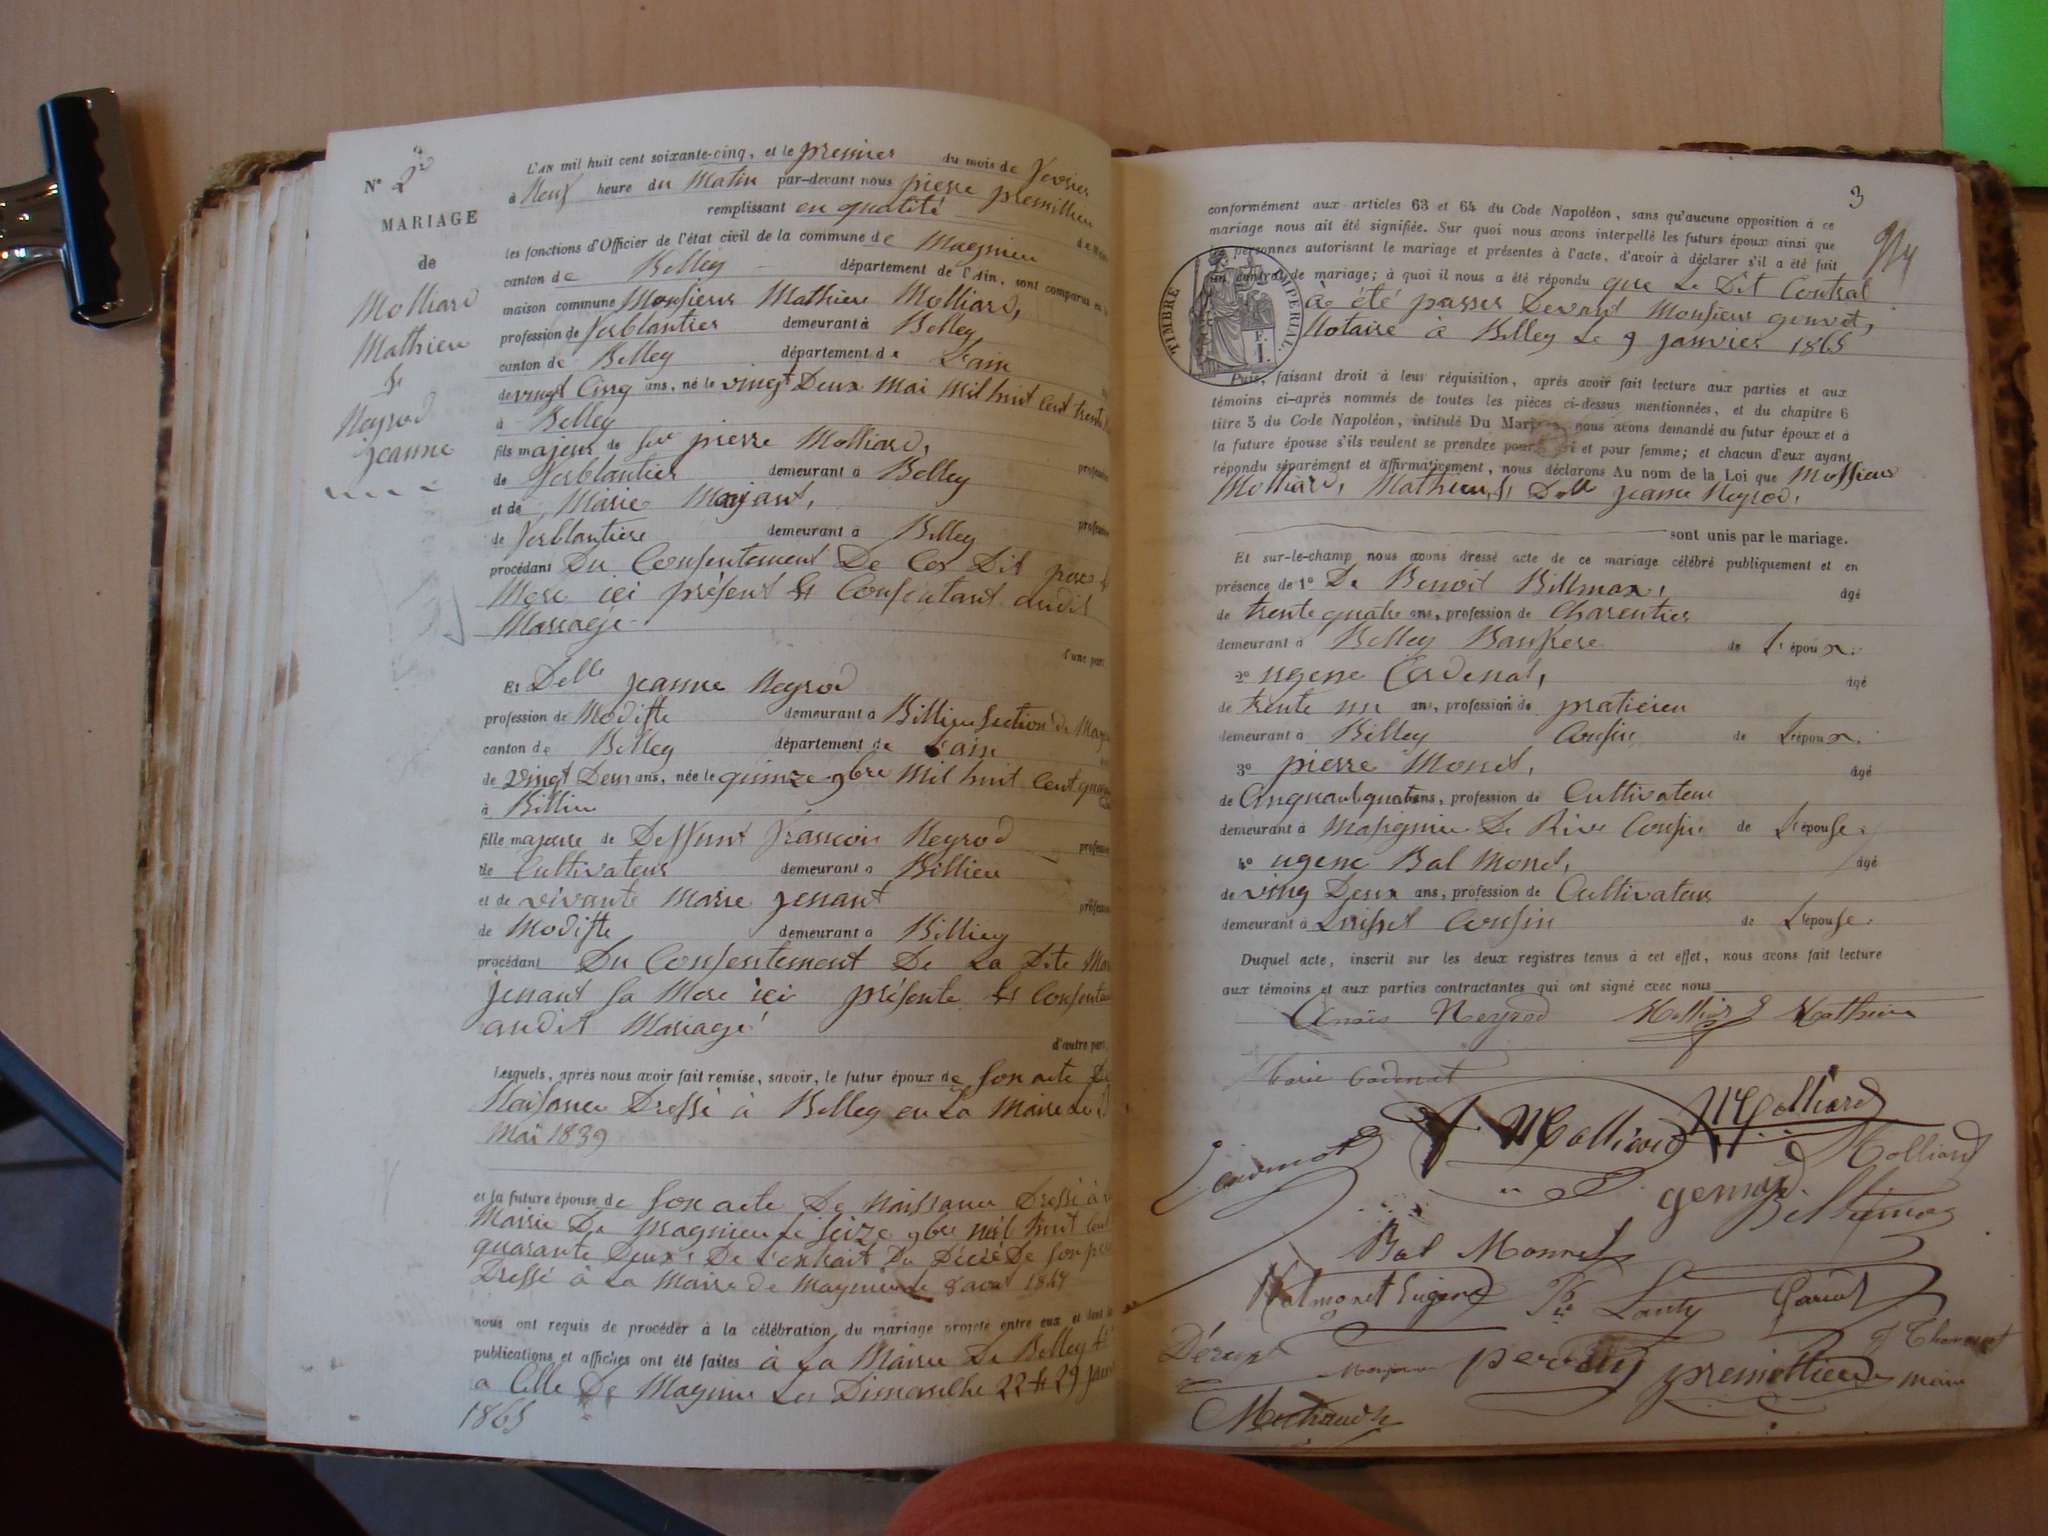 N° 2e
MARIAGE
de
Molliard
Mathieu
&
Neyrod
jeanne
L'AN mil huit cent soixante-cinq, et le premier du mois de fevrier
à Neuf heure du Matin par-devant nous pierre premillieu
remplissant en qualité
les fonctions d'Officier de l'état civil de la commune de Magnieu
canton de Belley département de l'Ain, sont comparus en la
maison commune Monsieur Mathieu Molliard,
profession de ferblantier demeurant à Belley
canton de Belley département de L'ain
de vingt Cinq ans, né le vingt Deux mai mil huit cent trente
à Belley
fils majeur de feu pierre Molliard, profession
de ferblantier demeurant à Belley
et de Marie profession
de ferblantiere demeurant à Belley
procédant Du Consentement De Ces Dit pere &
Mere ici présent & Consentant audit
Mariage
d'une part
Et Delle jeanne Neyrod
profession de Modiste demeurant à Billieu Section de
canton de Belley département de L'ain
de vingt Deux ans, née le quinze 9bre Mil huit Cent
à Billieu
fille majeure de Deffunt françois Neyrod profession
de Cultivateur demeurant à Billieu
et de vivante Marie jenant profession
de Modiste demeurant à Billieu
procédant Du Consentement De La Dite
jenant Sa Mere ici présente & Consentant
audit Mariage
d'autre part,
Lesquels, après nous avoir fait remise, savoir, le futur époux de Son acte De
Naissance Dressé à Belley en La Mairie Le
Mai 1839
et la future épouse de Son acte De Naissance Dressé à
Mairie De Magnieu Le Seize 9bre mil huit Cent
quarante Deux, De L'extrait Du Décé De Son pere
Dressé à La Mairie de Magnieu le 8 aout
nous ont requis de procéder à la célébration du mariage projeté entre eux et dont les
publications et affiches ont été faites à La Mairie De Belley &
a Celle De Magnieu Les Dimanche 22 & 29 janvier
1865
3
conformément aux articles 63 et 64 du Code Napoléon, sans qu'aucune opposition à ce
mariage nous ait été signifiée. Sur quoi nous avons interpellé les futurs époux ainsi que
les personnes autorisant le mariage et présentes à l'acte, d'avoir à déclarer s'il a été fait
un contrat de mariage; à quoi il nous a été répondu que Le Dit Contrat
à été passer Devant Monsieur genret,
Notaire à Belley Le 9 janvier 1865
TIMBRE IMPERIAL
Puis, faisant droit à leur réquisition, après avoir fait lecture aux parties et aux
témoins ci-après nommés de toutes les pièces ci-dessus mentionnées, et du chapitre 6
titre 5 du Code Napoléon, intitulé Du Mariage, nous avons demandé au futur époux et à
la future épouse s'ils veulent se prendre pour mari et pour femme; et chacun d'eux ayant
répondu séparément et affirmativement, nous déclarons Au nom de la Loi que Monsieur
Molliard, Mathieu, & Delle jeanne Neyrod,
sont unis par le mariage.
Et sur-le-champ nous avons dressé acte de ce mariage célébré publiquement et en
présence de 1° De Benoit Billmax, âgé
de trente quatre ans, profession de Charentier
demeurant à Belley Baufrere de L'époux.
2° ugene Cardenat, âgé
de trente un ans, profession de praticien
demeurant à Billey Cousin de L'époux.
3° pierre Monet, âgé
de Cinquante quatre ans, profession de Cultivateur
demeurant à Masignieu De Rive Cousin de L'épouse.
4° ugene Bal Monet, âgé
de ving Deux ans, profession de Cultivateur
demeurant à Cousin de L'épouse.
Duquel acte, inscrit sur les deux registres tenus à cet effet, nous avons fait lecture
aux témoins et aux parties contractantes qui ont signé avec nous
Anaïs Neyrod Molliard Mathieu
Marie
Molliard Molliard
Molliard
Bal Monnet
Balmonet Eugene
premillieu maire